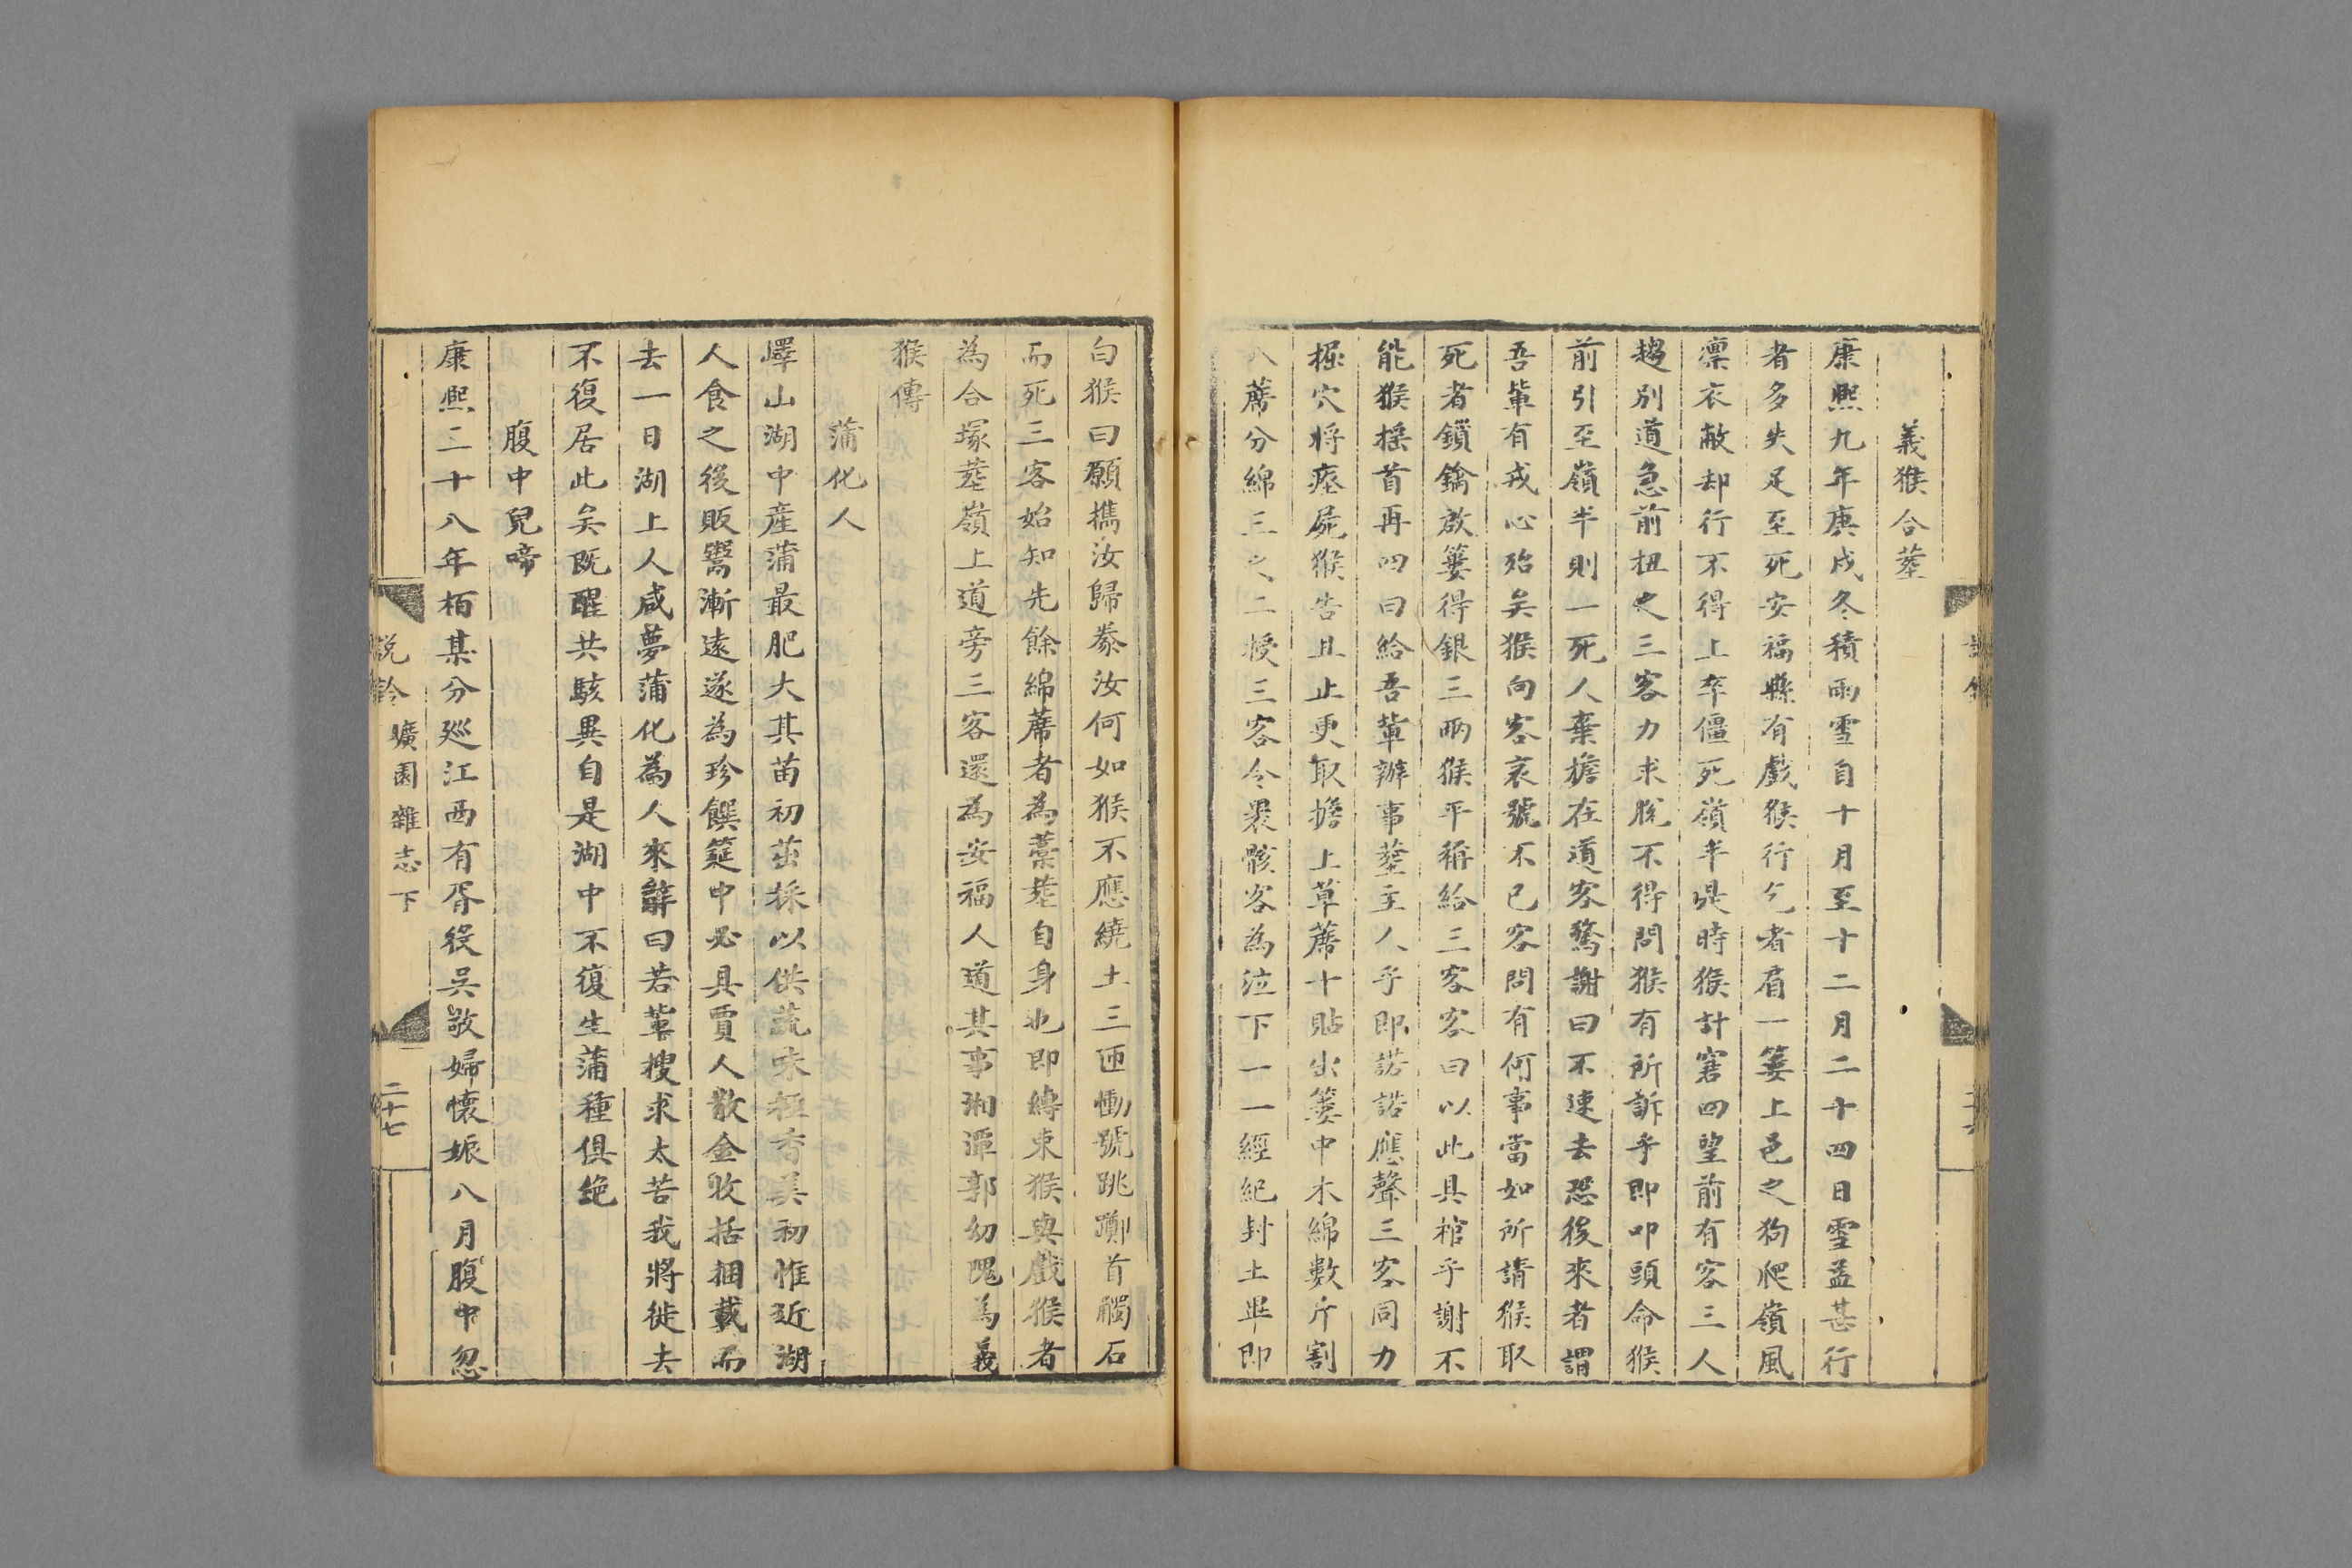 義猴合塟
康熙九年庚戌冬積雨雪自十月至十二月二十四日雪益甚行
者多失足至死安福縣有戲猴行乞者肩一簍上邑之狗爬嶺風
凛衣敝却行不得上卒僵死嶺半是時猴計窘四望前有客三人
趨別道急前扭之三客力求脫不得問猴有所訴乎即叩頭命猴
前引至嶺半則一死人棄擔在道客驚謝曰不速去恐後來者謂
吾軰有戎心殆矣猴向客哀號不已客問有何事當如所請猴取
死者鎖鑰啟簍得銀三兩猴平稱給三客客曰以此具棺乎謝不
能猴揺首再四曰給吾軰辦事塟主人乎即諾諾應聲三客同力
掘穴将瘞屍猴告且止更取擔上草蓆十貼出簍中木綿數斤割
八蓆分綿三之二授三客令褁骸客為泣下一一經紀封土畢即
白猴曰願攜汝歸豢汝何如猴不應繞土三匝慟號跳躑首觸石
而死三客始知先餘綿蓆者為藁塟自身也即縛束猴與戲猴者
為合塚塟嶺上道旁三客還為安福人道其事湘潭郭幼隗為義
猴傳
蒲化人
嶧山湖中産蒲最肥大其苗初茁採以供蔬味極香美初惟近湖
人食之後販鬻漸遠遂為珍饌筵中必具賈人散金收括捆載而
去一日湖上人咸夢蒲化為人來辭曰若軰搜求太苦我將徙去
不復居此矣既醒共駭異自是湖中不復生蒲種俱絶
腹中兒啼
康熙二十八年栢某分廵江西有胥役吳敬婦懷娠八月腹中忽
説鈴
曠園雜志下
二十七